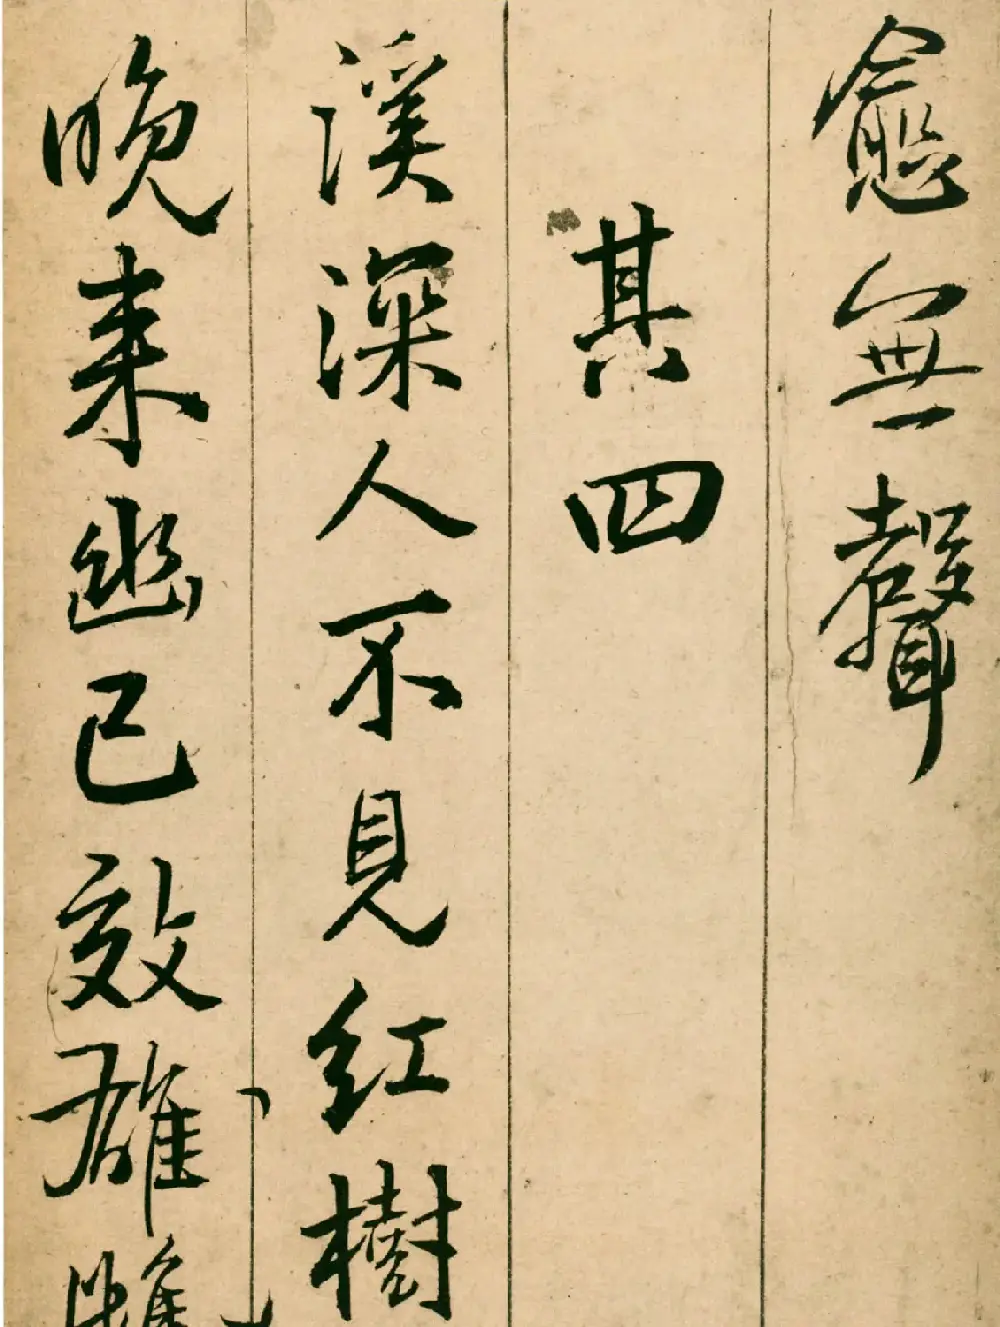 愈無聲
其四
溪深人不見紅樹
晚来幽已效雄雌